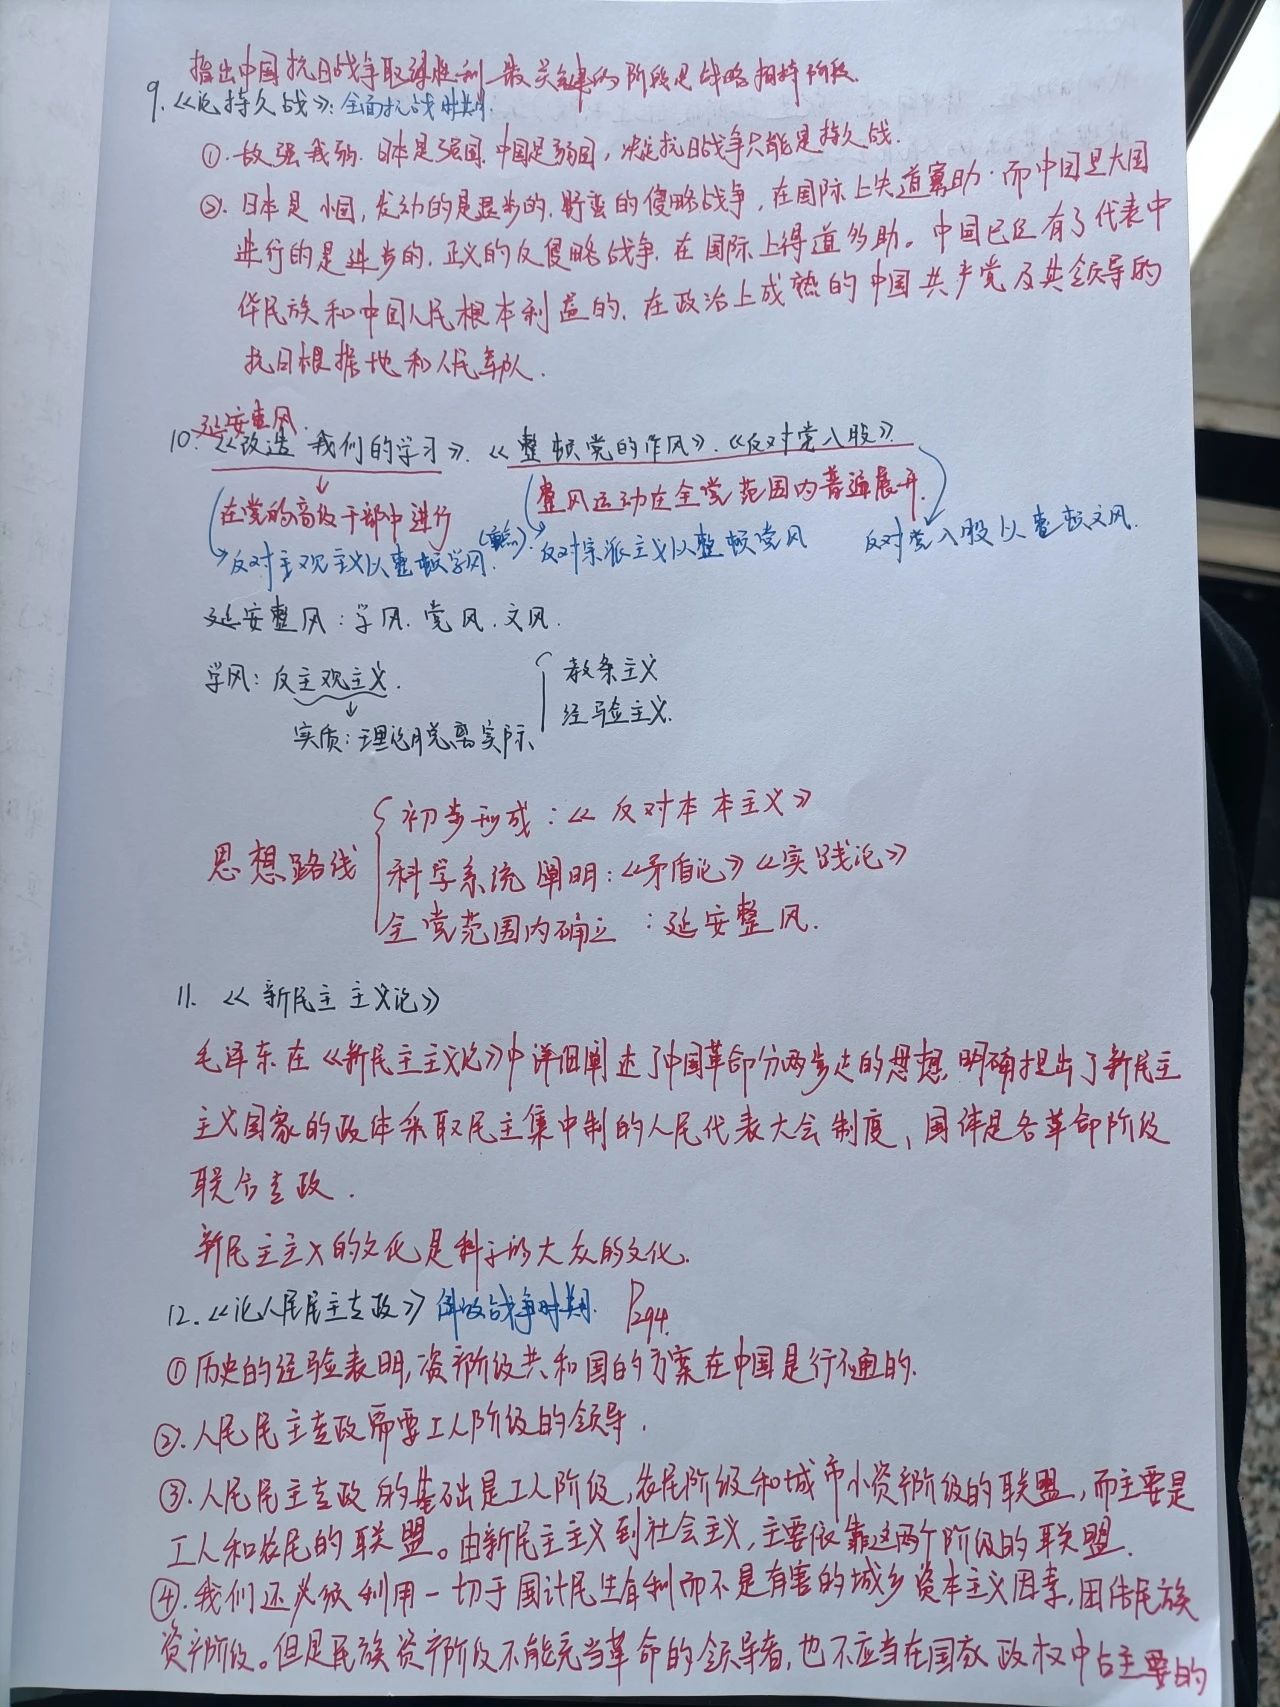 指出中国抗日战争取得胜利最关键的阶段是战略相持阶段.
9.《论持久战》: 全面抗战时期.
①.敌强我弱. 日本是强国. 中国是弱国, 决定抗日战争只能是持久战.
②.日本是小国, 发动的是退步的. 野蛮的侵略战争, 在国际上失道寡助. 而中国是大国
进行的是进步的. 正义的反侵略战争. 在国际上得道多助。中国已经有了代表中
华民族和中国人民根本利益的. 在政治上成熟的中国共产党及其领导的
抗日根据地和人民军队.
延安整风.
10.《改造我们的学习》.《整顿党的作风》.《反对党八股》
在党的高级干部中进行
整风运动在全党范围内普遍展开.
反对主观主义以整顿学风.(重点).
反对宗派主义以整顿党风
反对党八股以整顿文风.
延安整风: 学风. 党风. 文风.
学风: 反主观主义.
实质: 理论脱离实际
教条主义
经验主义.
思想路线
初步形成:《反对本本主义》
科学系统阐明:《矛盾论》《实践论》
全党范围内确立 : 延安整风.
11.《新民主主义论》
毛泽东在《新民主主义论》中详细阐述了中国革命分两步走的思想, 明确提出了新民主
主义国家的政体采取民主集中制的人民代表大会制度, 国体是各革命阶级
联合专政.
新民主主义的文化是科学的大众的文化.
12.《论人民民主专政》解放战争时期. P294.
①历史的经验表明, 资产阶级共和国的方案在中国是行不通的.
②.人民民主专政需要工人阶级的领导.
③.人民民主专政的基础是工人阶级, 农民阶级和城市小资产阶级的联盟, 而主要是
工人和农民的联盟。由新民主主义到社会主义, 主要依靠这两个阶级的联盟.
④.我们还必须利用一切于国计民生有利而不是有害的城乡资本主义因素, 团结民族
资产阶级。但是民族资产阶级不能充当革命的领导者, 也不应当在国家政权中占主要的